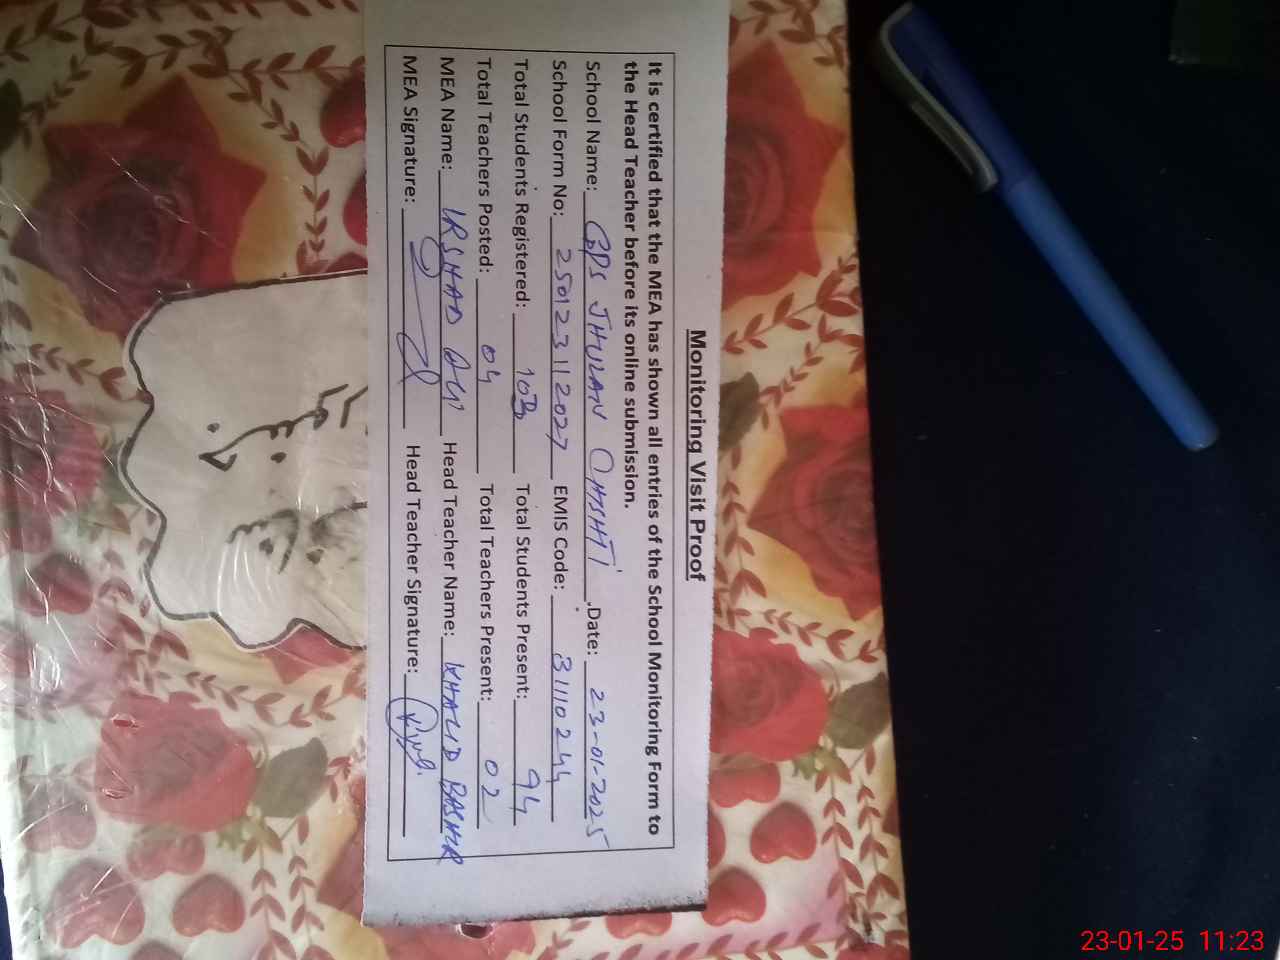 Monitoring Visit Proof
It is certified that the MEA has shown all entries of the School Monitoring Form to
the Head Teacher before its online submission.
School Name: GPS JHULAN CHISHTI .Date: 23-01-2025
School Form No: 250123112027 EMIS Code: 31110244
Total Students Registered: 103 Total Students Present: 94
Total Teachers Posted: 04 Total Teachers Present: 02
MEA Name: IRSHAD ALI Head Teacher Name: KHALID BASHIR
MEA Signature: Head Teacher Signature:
23-01-25 11:23